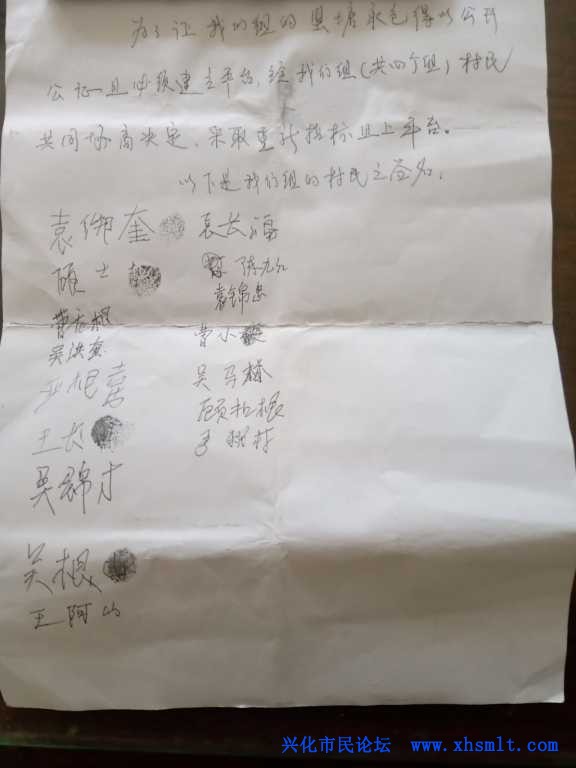 为了让我们组的鱼塘承包得以公开
公证且必须建立平台,经我们组(共四个组)村民
共同协商决定,采取重新招标且上平台。
以下是我们组的村民之签名:
袁傍奎 袁长福
顾士 陈九红
袁锦忠
曹 根 曹小
吴洪奎
根喜 吴马林
王长 顾拉根
吴锦才 村
吴根
王阿山
兴化市民论坛 www.xhsmlt.com